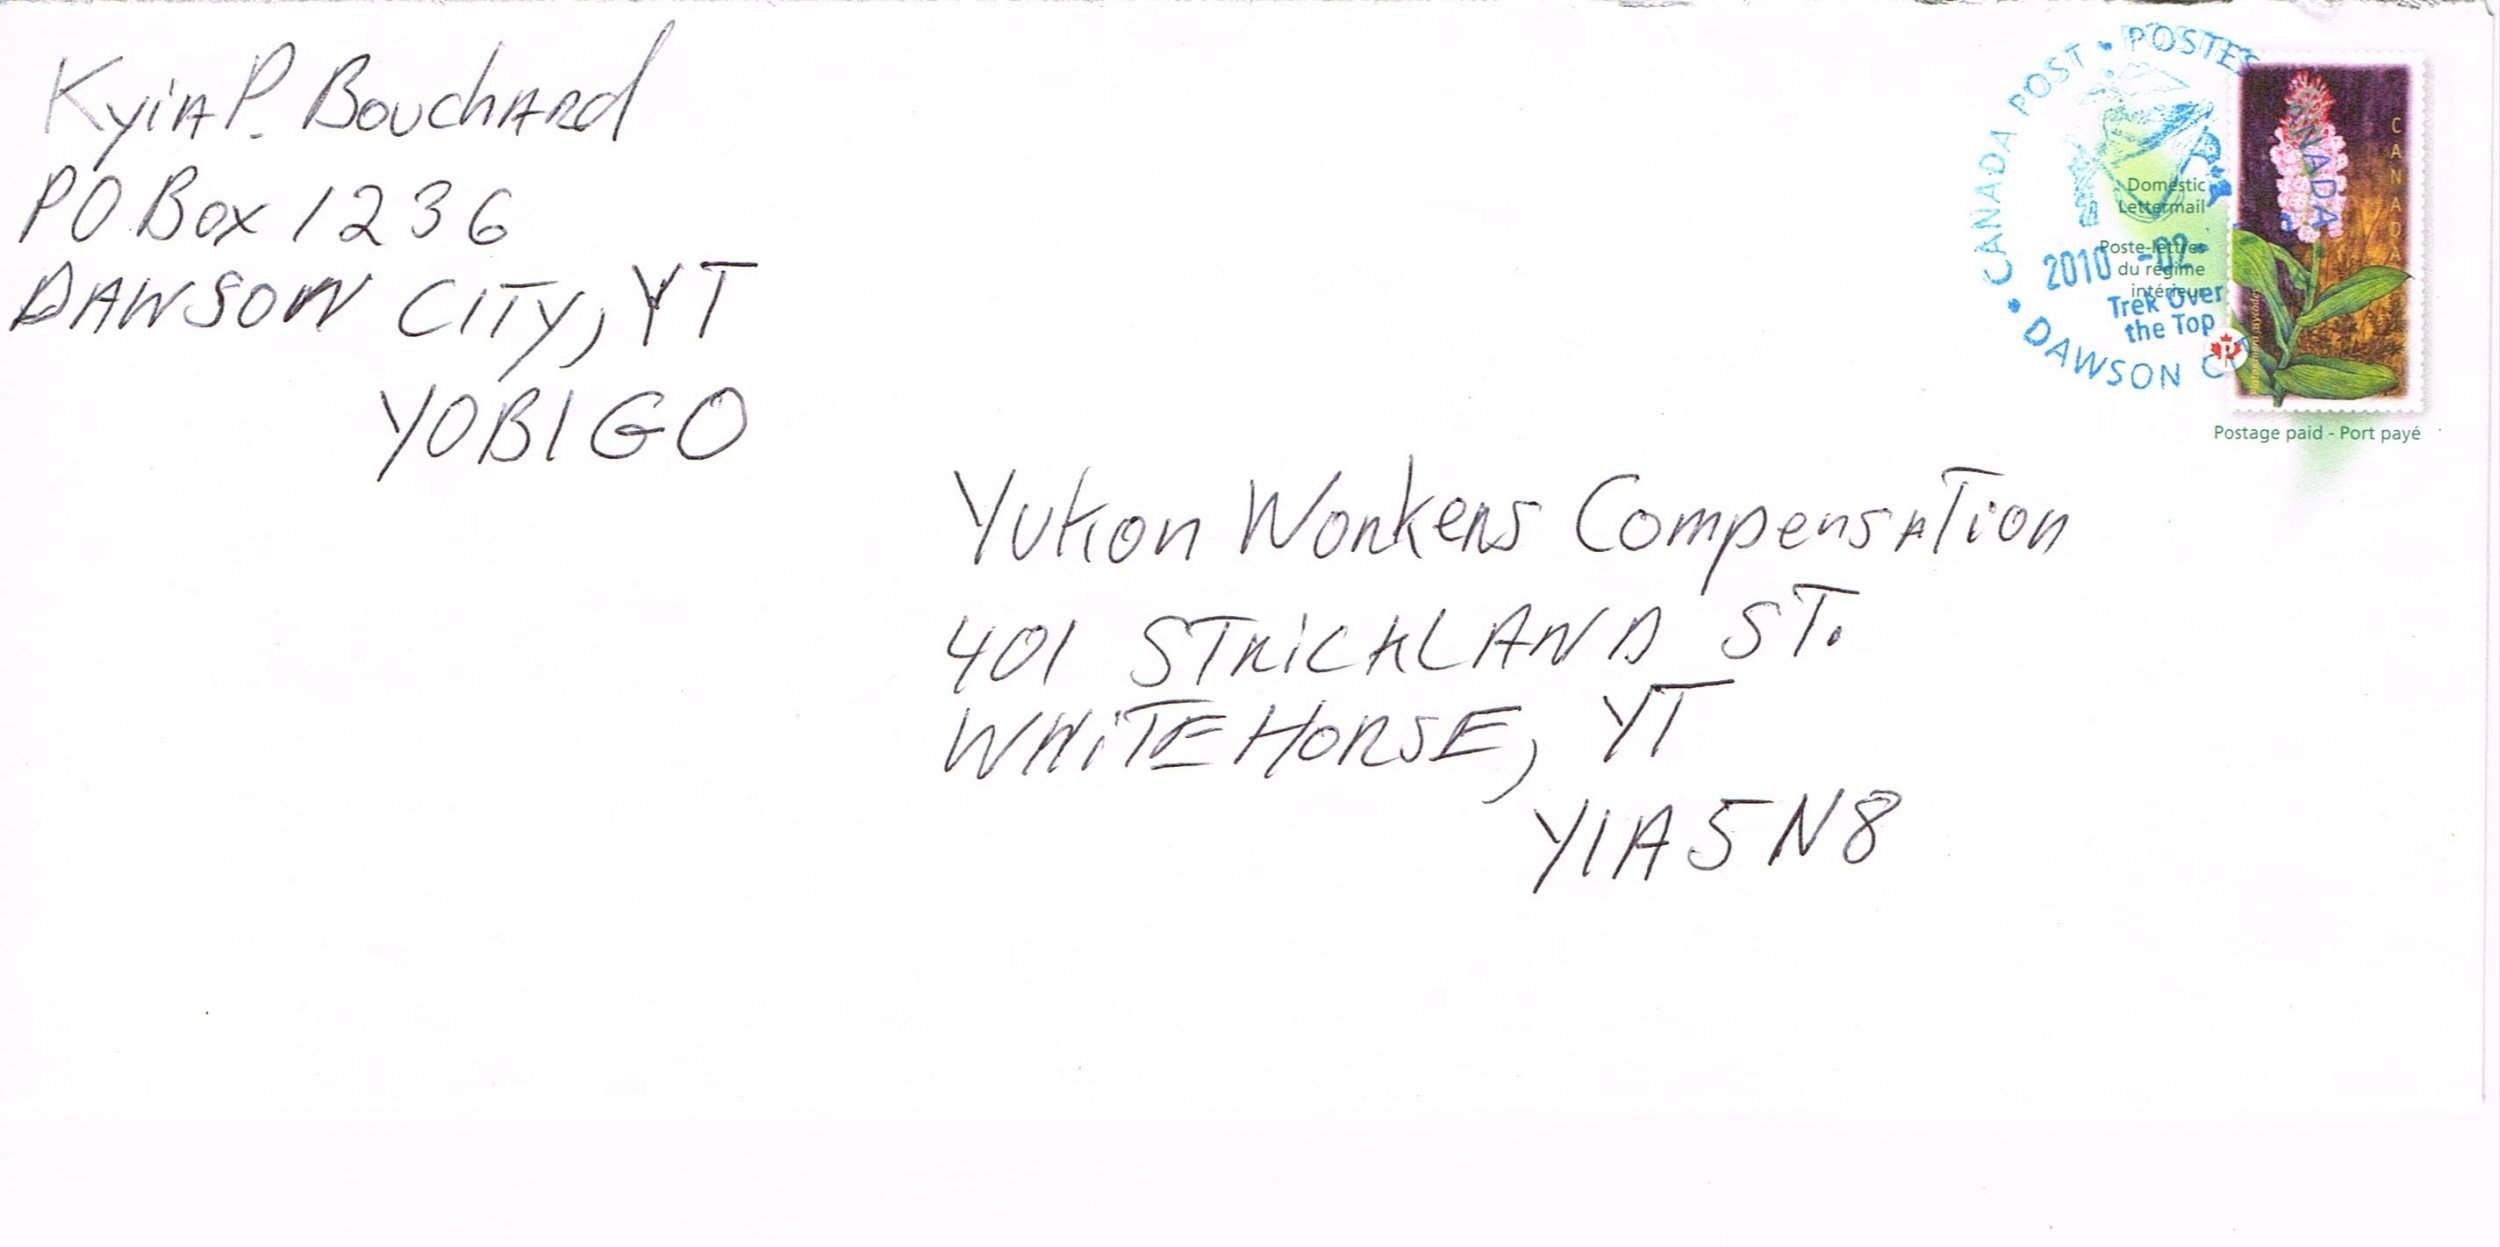 Kyia P. Bouchard
PO Box 1236
DAWSON CITY, YT
Y0B1G0
Yukon Workers Compensation
401 STRICKLAND ST.
WHITEHORSE, YT
Y1A5N8
CANADA POST • POSTES CANADA
• DAWSON
2010 -02-
Trek Over
the Top
Domestic
Lettermail
Poste-lettres
du régime
intérieur
CANADA
P
Postage paid - Port payé